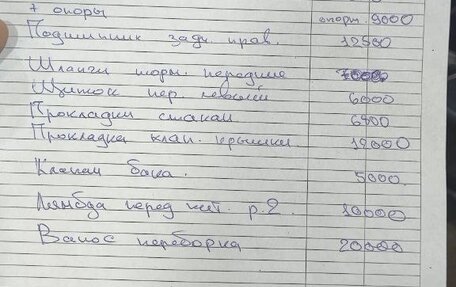 + опоры опоры. 9000
Подшипник задн. прав. 12500
Шланги торм. передние 7000
Щиток пер. левый 6000
Прокладки стакан
Прокладка клап. крышки 12000
Клапан бака. 5000.
Лямбда перед кат. р.2. 10000
Ванос переборка 20000